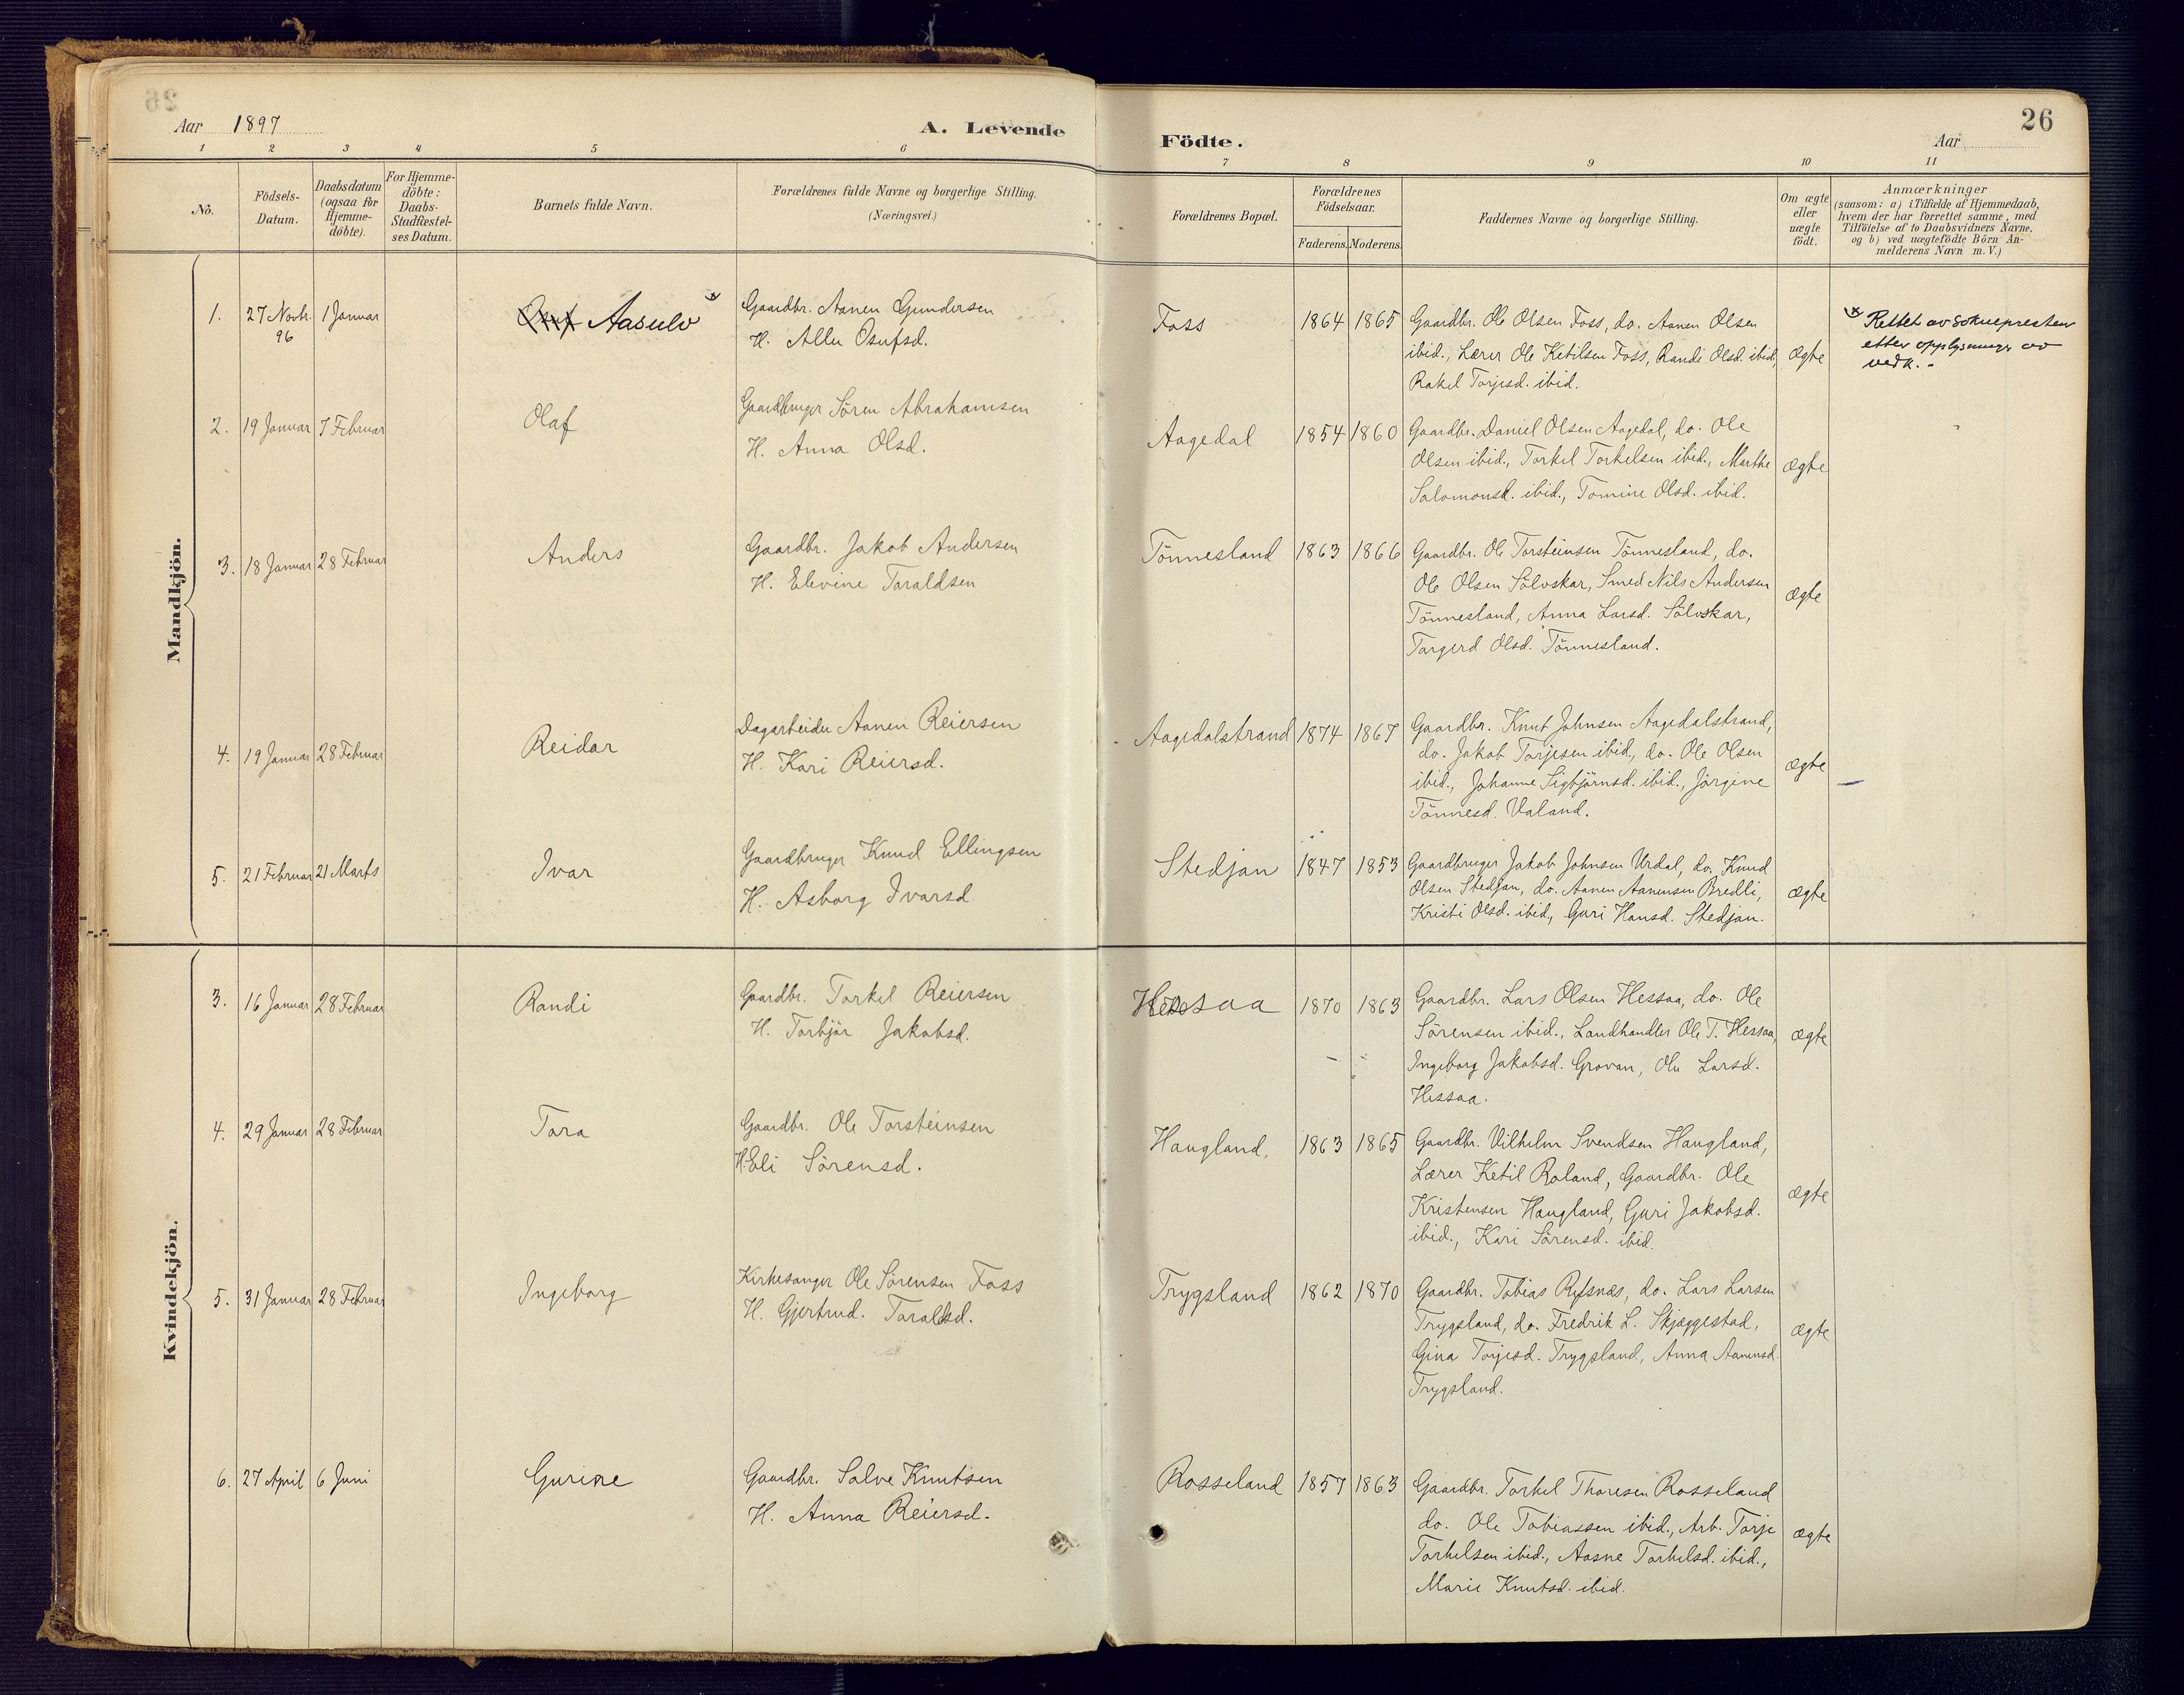 26
Aar 1897
A. Levende Födte.
Aar
1 2 3 4 5 6 7 8 9 10 11
No.
Födsels-
Datum.
Daabsdatum
(ogsaa for
Hjemme-
döbte).
For Hjemme-
döbte:
Daabs-
Stadfæstel-
ses Datum.
Barnets fulde Navn.
Forældrenes fulde Navne og borgerlige Stilling.
(Næringsvei.)
Forældrenes Bopæl.
Forældrenes
Födselsaar.
Faderens. Moderens.
Faddernes Navne og borgerlige Stilling.
Om ægte
eller
uægte
födt.
Anmærkninger
(saasom: a) i Tilfælde af Hjemmedaab,
hvem der har forrettet samme, med
Tilföielse af to Daabsvidners Navne,
og b) ved uægtefödte Börn An-
melderens Navn m. V.)
Mandkjön.
1. 27 Novbr. 96 1 Januar Aasulv x
Gaardbr. Aanen Gundersen
H. Allu Osufsd.
Foss 1864 1865
Gaardbr. Ole Olsen Foss, do. Aanen Olsen
ibid., Lærer Ole Ketilsen Foss, Randi Olsd. ibid,
Rakel Torjesd. ibid.
ægte
x Rettet av soknepresten
etter opplysninger av
vedk. -
2. 19 Januar 7 Februar Olaf
Gaardbruger Sören Abrahamsen
H. Anna Olsd.
Aagedal 1854 1860
Gaardbr. Daniel Olsen Aagedal, do. Ole
Olsen ibid., Torkel Torkelsen ibid., Marthe
Salomonsd. ibid., Tomine Olsd. ibid.
ægte
3. 18 Januar 28 Februar Anders
Gaardbr. Jakob Andersen
H. Elevine Taraldsen
Tönnesland 1863 1866
Gaardbr. Ole Torsteinsen Tönnesland, do.
Ole Olsen Sölvskar, Smed Nils Andersen
Tönnesland, Anna Larsd. Sölvskar,
Targerd Olsd. Tönnesland.
ægte
4. 19 Januar 28 Februar Reidar
Dagarbeider Aanen Reiersen
H. Kari Reiersd.
Aagedalstrand 1874 1867
Gaardbr. Knut Johnsen Aagedalstrand,
do. Jakob Torjesen ibid., do. Ole Olsen
ibid., Johanne Sigbjörnsd. ibid., Jörgine
Tönnesd. Valand.
ægte
5. 21 Februar 21 Marts Ivar
Gaardbruger Knud Ellingsen
H. Asborg Ivarsd.
Stedjan 1847 1853
Gaardbruger Jakob Johnsen Urdal, do. Knud
Olsen Stedjan, do. Aanen Aanensen Bredli,
Kristi Olsd. ibid, Guri Hansd. Stedjan.
ægte
Kvindekjön.
3. 16 Januar 28 Februar Randi
Gaardbr. Torkel Reiersen
H. Torbjör Jakobsd.
Hessaa 1870 1863
Gaardbr. Lars Olsen Hessaa, do. Ole
Sörensen ibid., Landhandler Ole T. Hessaa,
Ingeborg Jakobsd. Grovan, Olu Larsd.
Hessaa.
ægte
4. 29 Januar 28 Februar Tora
Gaardbr. Ole Torsteinsen
H. Eli Sörensd.
Haugland, 1863 1865
Gaardbr. Vilhelm Svendsen Haugland,
Lærer Ketil Roland, Gaardbr. Ole
Kristensen Haugland, Guri Jakobsd.
ibid., Kari Sörensd. ibid.
ægte
5. 31 Januar 28 Februar Ingeborg
Kirkesanger Ole Sörensen Foss
H. Gjertrud. Taraldsd.
Trygsland 1862 1870
Gaardbr. Tobias Refsnæs, do. Lars Larsen
Trygsland, do. Fredrik L. Skjæggestad,
Gina Torjesd. Trygsland, Anna Aanensd.
Trygsland.
ægte
6. 27 April 6 Juni Gurine
Gaardbr. Salve Knutsen
H. Anna Reiersd.
Rosseland 1857 1863
Gaardbr. Torkel Thoresen Rosseland
do. Ole Tobiassen ibid., Arb. Torje
Torkelsen ibid., Aasne Torkelsd. ibid.,
Marie Knutsd. ibid.
ægte